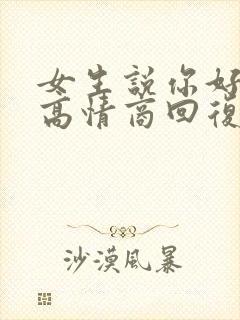 女生說你好
高情商回復
沙漠風暴